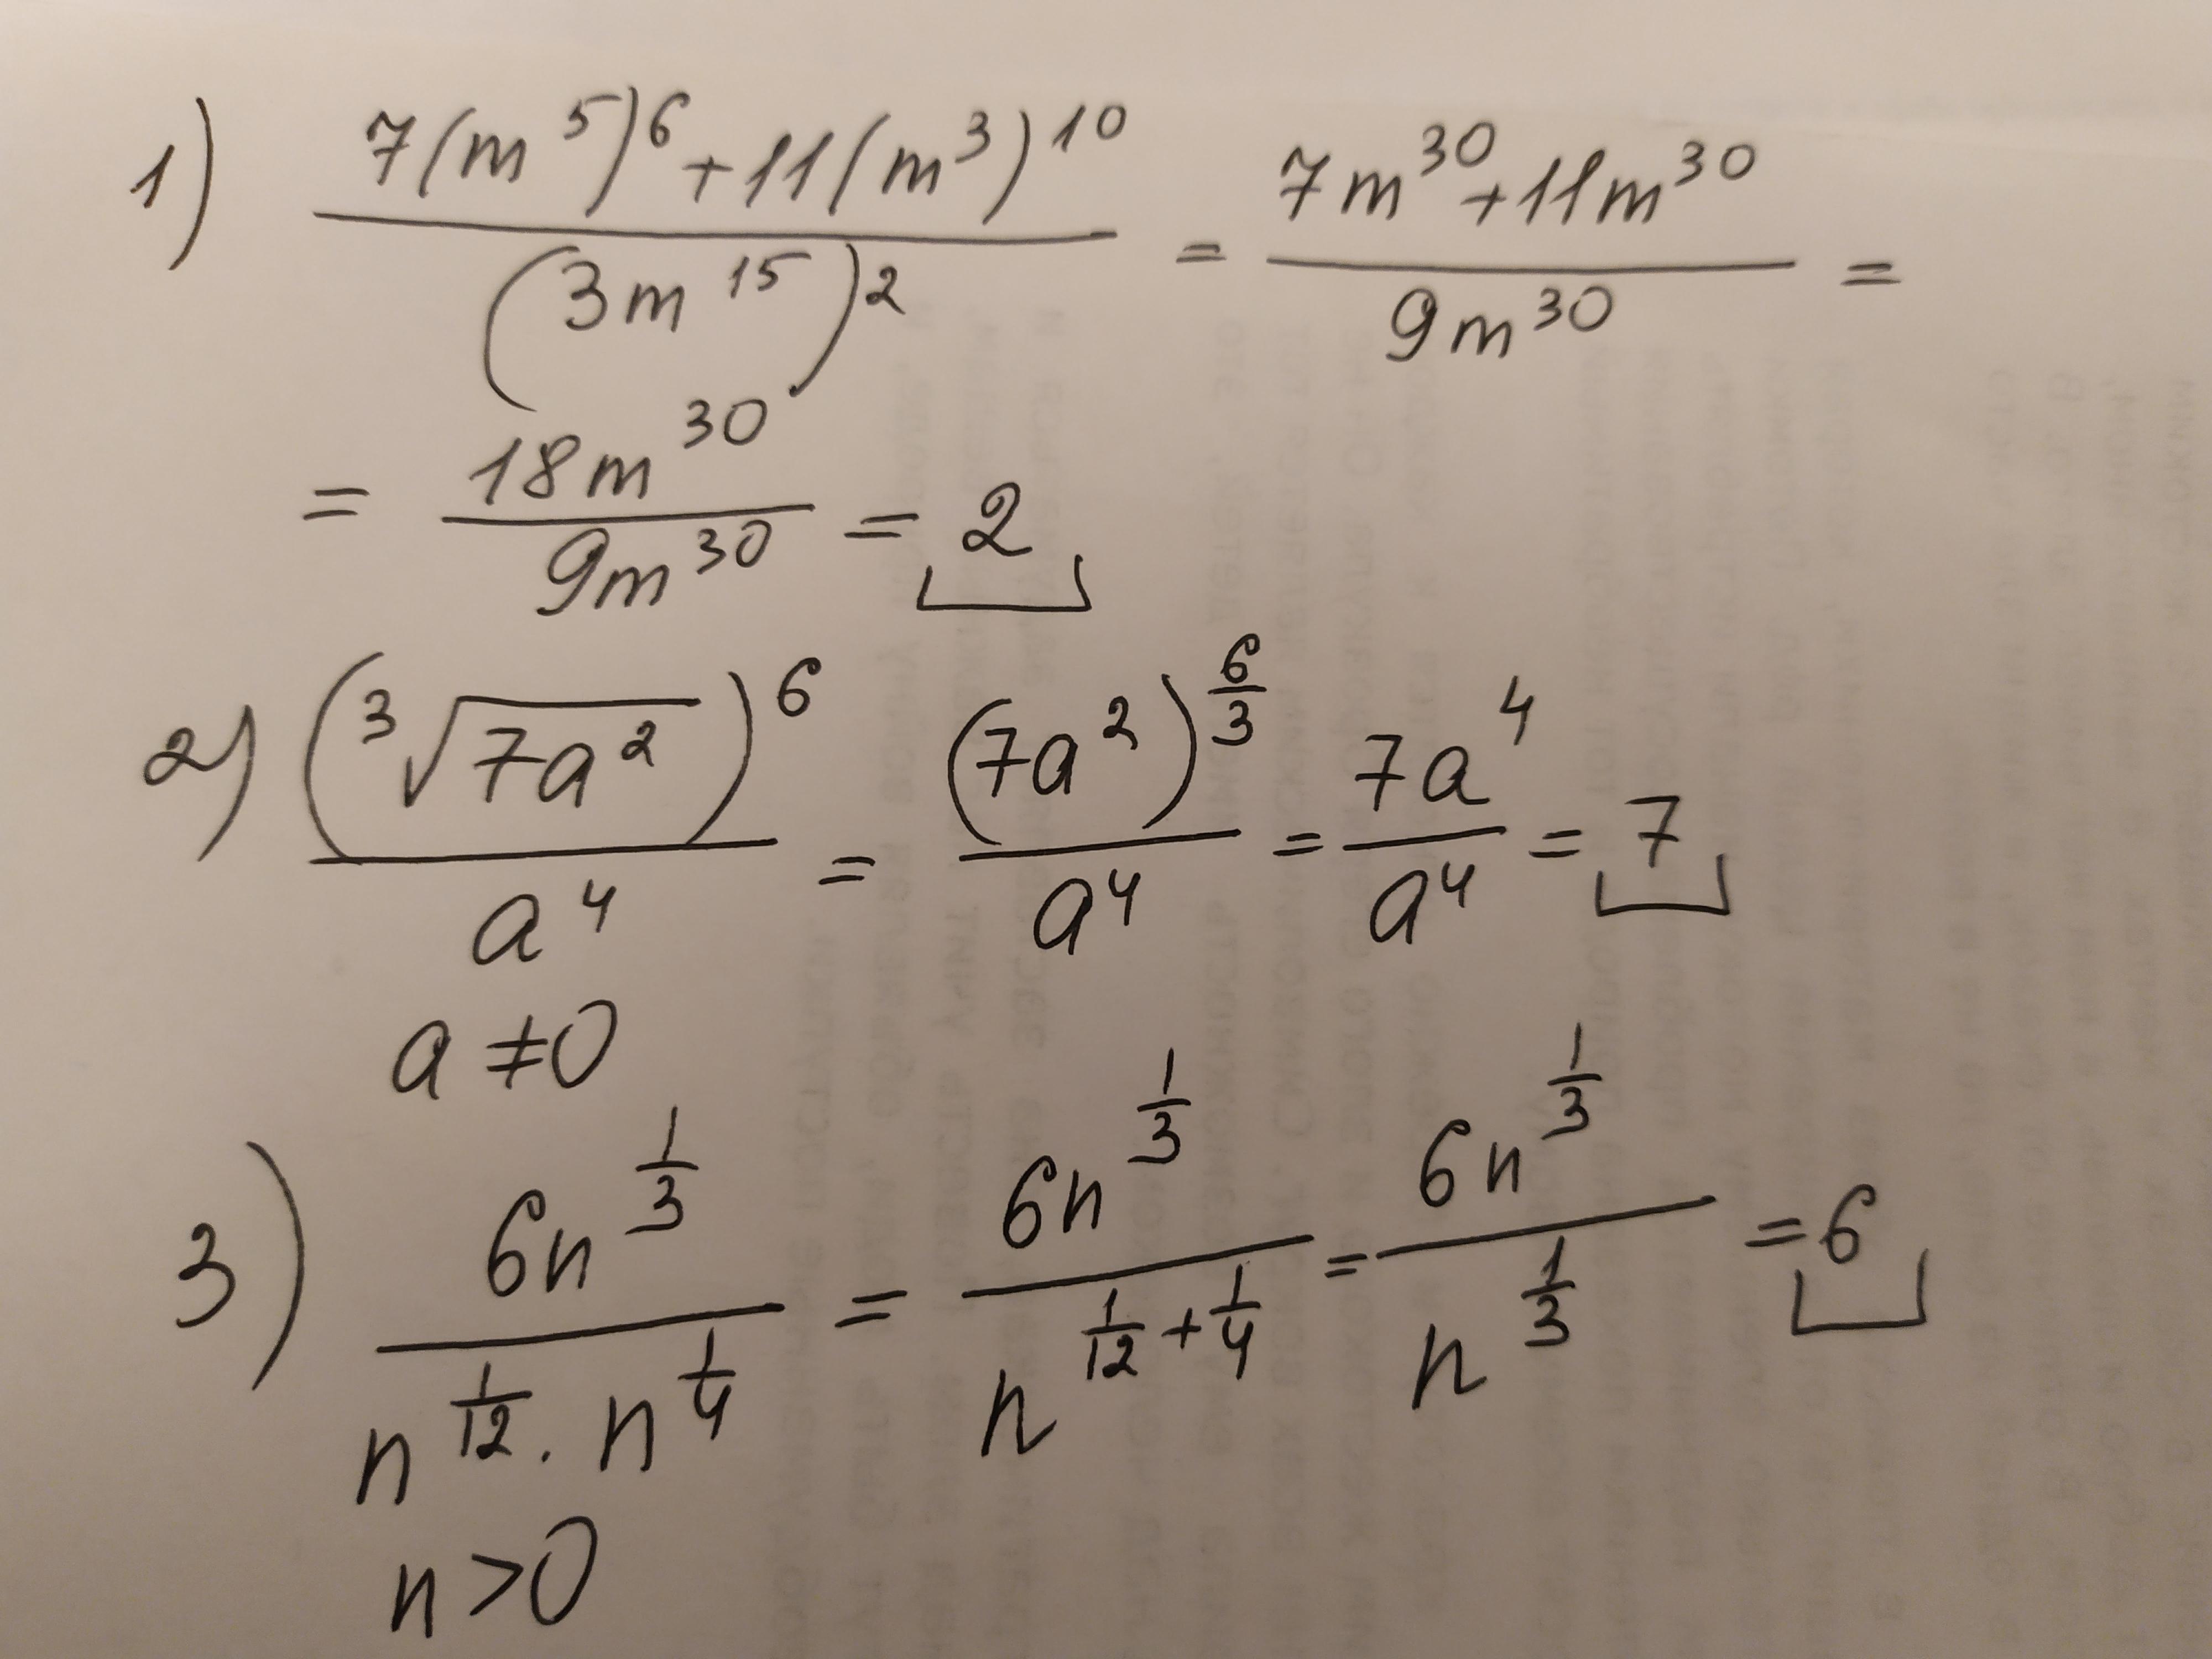 1) (7(m^5)^6 + 11(m^3)^10) / (3m^15)^2 = (7m^30 + 11m^30) / 9m^30 =
= 18m^30 / 9m^30 = 2
2) (∛(7a^2))^6 / a^4 = (7a^2)^(6/3) / a^4 = 7a^4 / a^4 = 7
a ≠ 0
3) 6n^(1/3) / (n^(1/12) · n^(1/4)) = 6n^(1/3) / n^(1/12 + 1/4) = 6n^(1/3) / n^(1/3) = 6
n > 0